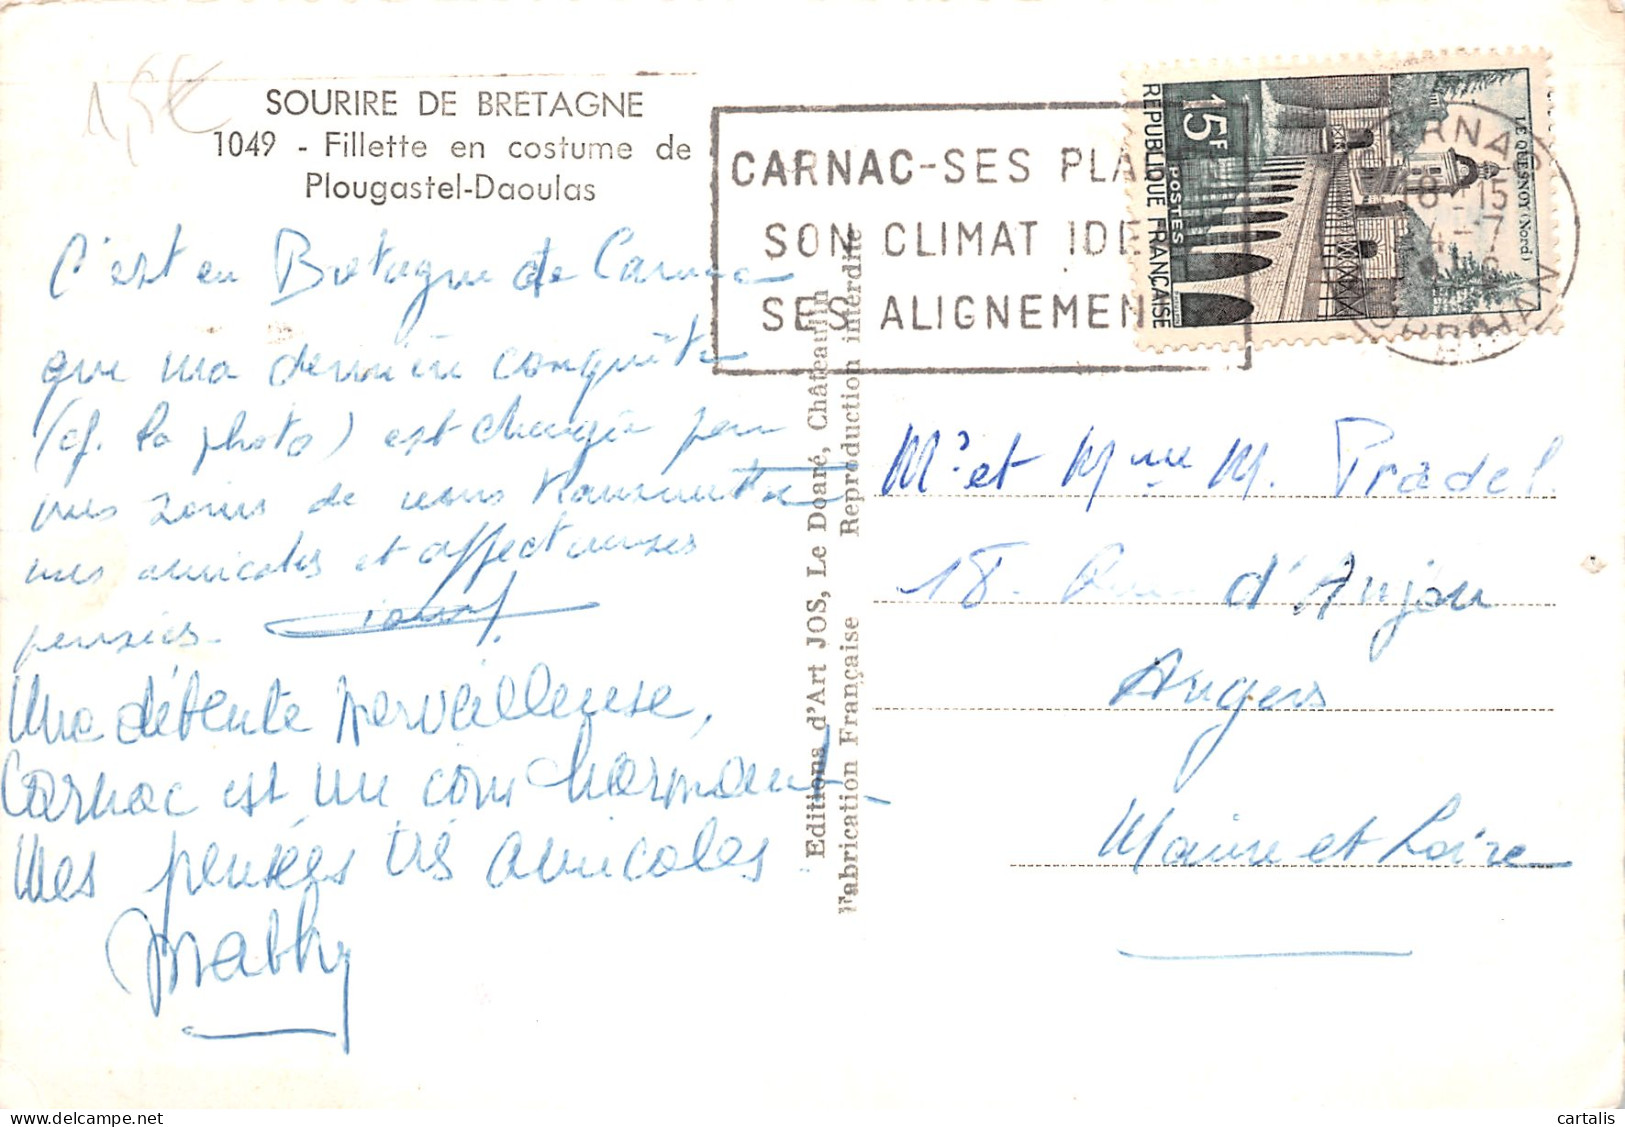 1,5€
SOURIRE DE BRETAGNE
1049 - Fillette en costume de
Plougastel-Daoulas
C'est en Bretagne de Carnac
que ma dernière conquête
(cf. la photo) est chargée pour
vous de vous transmettre
mes amicales et affectueuses
pensées.
Une détente merveilleuse,
Carnac est un coin charmant
Mes pensées très amicales
Editions d'Art JOS, Le Doaré, Châteaulin
Fabrication Française Reproduction interdite
CARNAC-SES PLA
SON CLIMAT IDE
SES ALIGNEMEN
15F
REPUBLIQUE FRANÇAISE
POSTES
LE QUESNOY (Nord)
CARNAC
18 15
4-7
MORBIHAN
Mr et Mme M. Pradel.
18. Rue d'Anjou
Angers
Maine et Loire
cartalis